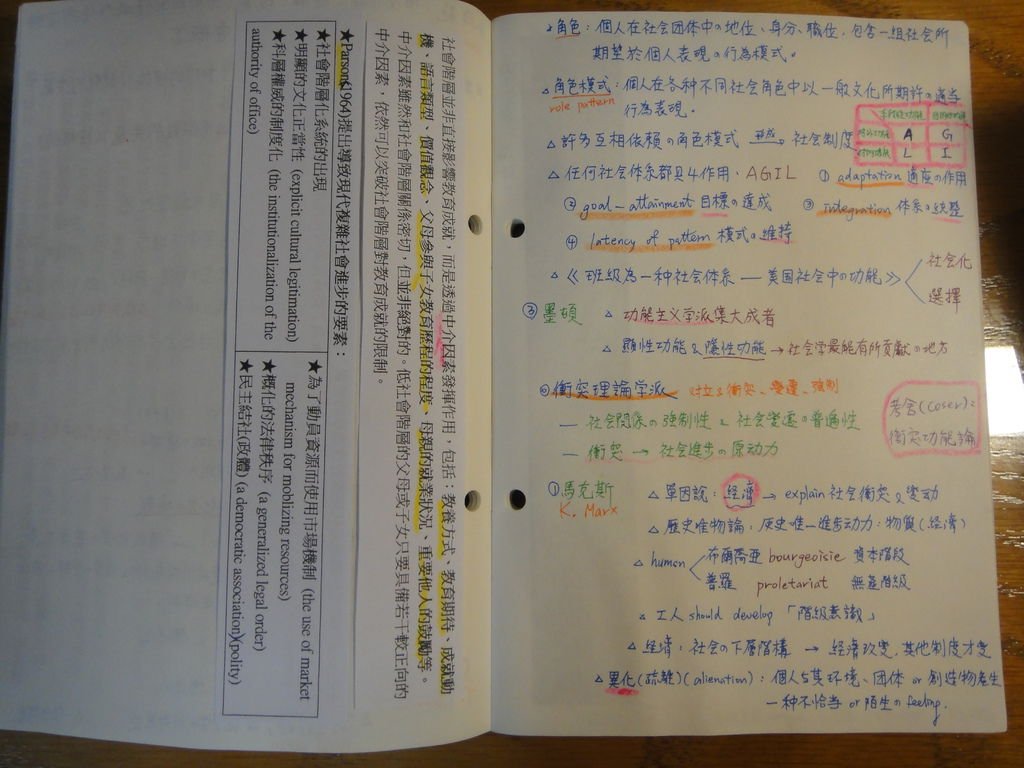 社會階層並非直接影響教育成就，而是透過中介因素發揮作用，包括：教養方式、教育期待、成就動
機、語言類型、價值觀念、父母參與子女教育歷程的程度、母親的就業狀況、重要他人的鼓勵等。
中介因素雖然和社會階層關係密切，但並非絕對的。低社會階層的父母或子女只要具備若干較正向的
中介因素，依然可以突破社會階層對教育成就的限制。
★Parson(1964)提出導致現代複雜社會進步的要素：
★社會階層化系統的出現
★明顯的文化正當性 (explicit cultural legitimation)
★科層權威的制度化 (the institutionalization of the
authority of office)
★為了動員資源而使用市場機制 (the use of market
mechanism for moblizing resources)
★概化的法律秩序 (a generalized legal order)
★民主結社(政體) (a democratic association)(polity)
角色：個人在社会团体中の地位、身分、職位，包含一組社会所
期望於個人表現の行為模式。
△角色模式：個人在各种不同社会角色中以一般文化所期許の適当
role pattern 行為表現。
A G
L I
△許多互相依賴の角色模式 → 社会制度
△任何社会体系都具4作用、AGIL ① adaptation 適應の作用
② goal-attainment 目標の達成 ③ integration 体系の統整
④ latency of pattern 模式の維持
△《班級為一种社会体系 — 美国社会中の功能》 社会化
選擇
③墨頓 △ 功能主义学派集大成者
△ 顯性功能 & 隱性功能 → 社会学最能有所貢獻の地方
衝突理論学派 対立&衝突、變遷、強制
— 社会關係の強制性 & 社会變遷の普遍性
— 衝突 → 社会進步の原动力
考舍(Coser)：
衝突功能論
①馬克斯 △ 單因說：經濟 → explain 社会衝突 & 變动
K. Marx
△ 歷史唯物論：历史唯一進步动力：物質(經濟)
△ human 布爾喬亞 bourgeoisie 資本階段
普羅 proletariat 無產階級
△ 工人 should develop「階級意識」
△ 經濟：社会の下層階構 → 經濟改變，其他制度才變
△異化(疏離)(alienation)：個人与其环境、团体 or 創造物產生
一种不恰当 or 陌生の feeling.